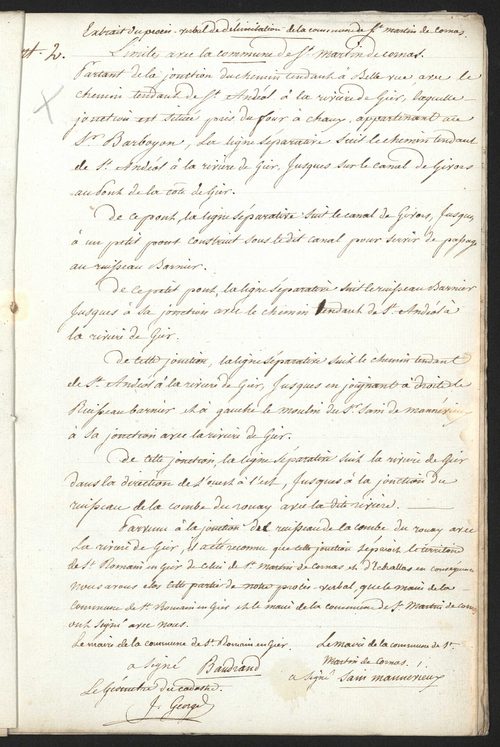 Extrait du procès-verbal de délimitation de la commune de St. martin de cornas.
art. 2. Limites avec la commune de St. Martin de cornas.
Partant de la jonction du chemin tendant à Belle vue avec le
chemin tendant de St. Andéol à la rivière de Gier, laquelle
jonction est située près du four à chaux, appartenant au
Sr. Barboyon, La ligne séparative suit le chemin tendant
de St. Andéol à la rivière de Gier, Jusques sur le canal de Givors
au pont de la côte de Gier.
De ce pont, la ligne séparative suit le canal de Givors, Jusques
à un petit pont construit sous le dit canal pour servir de passage
au ruisseau Barnier.
De ce petit pont, la ligne séparative suit le ruisseau Barnier
Jusques à sa jonction avec le chemin tendant de St. Andéol à
la rivière de Gier.
De cette jonction, la ligne séparative suit le chemin tendant
de St. Andéol à la rivière de Gier, Jusques en joignant à droite le
Ruisseau barnier et à gauche le moulin du Sr. Sain de mannévieux
à sa jonction avec la rivière de Gier.
De cette jonction, la ligne séparative suit la rivière de Gier
dans la direction de l'ouest à l'est, Jusques à la jonction du
ruisseau de la combe du rouay avec la dite rivière.
Parvenu à la jonction del ruisseau de la combe du rouay avec
La rivière de Gier, il a été reconnu que cette jonction séparoit le territoire
de St. Romain en Gier de celui de St. martin de Cornas et d'Echallas en conséquence
nous avons clos cette partie de notre procès-verbal, que le maire de la
commune de St. Romain en Gier et le maire de la commune de St. Martin de Cornas
ont signé avec nous.
Le maire de la commune de St. Romain en Gier.
a signé Baudrand
Le Maire de la commune de St.
Martin de Cornas.
a signé Sain mannevieux
Le Géomètre du cadastre
J. George